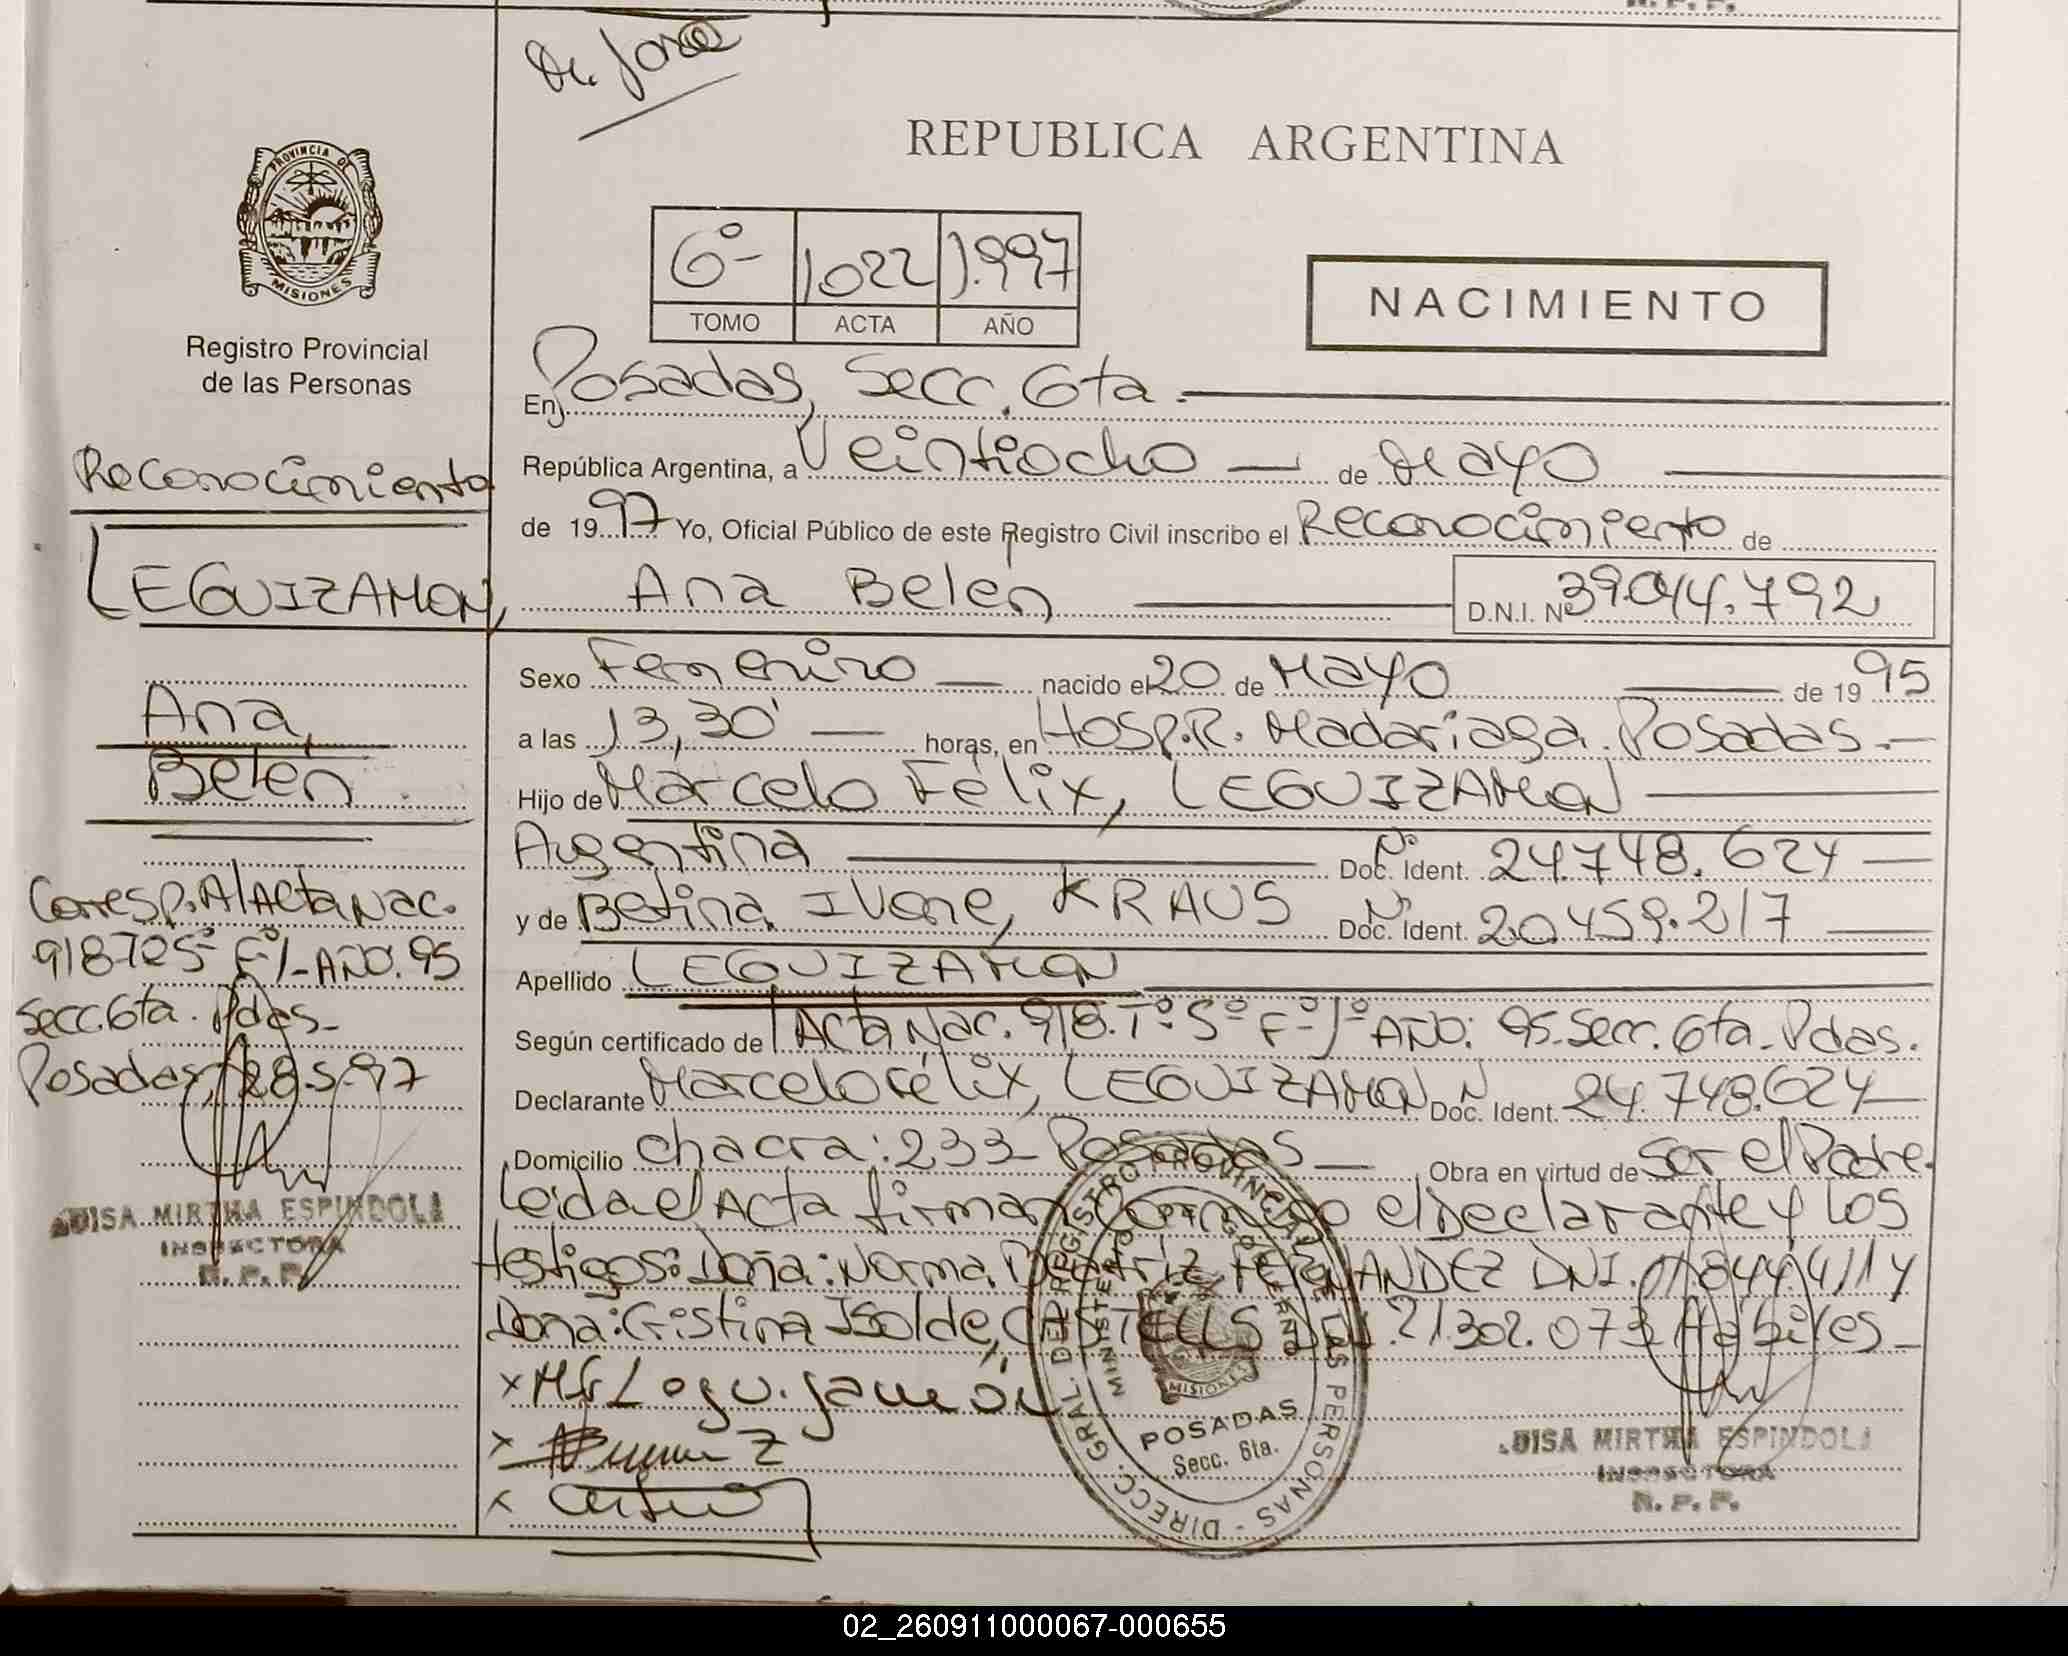 REPUBLICA ARGENTINA
PROVINCIA DE
MISIONES
Registro Provincial
de las Personas
6º- 1022 1.997
TOMO ACTA AÑO
NACIMIENTO
En Posadas, Secc. 6ta.
República Argentina, a Veintiocho de Mayo
de 1997 Yo, Oficial Público de este Registro Civil inscribo el Reconocimiento de
Ana Belén D.N.I. Nº 39.044.792
Sexo Femenino nacido el 20 de Mayo de 1995
a las 13,30' horas, en Hosp. R. Madariaga. Posadas.-
Hijo de Marcelo Félix, LEGUIZAMON
Argentina Doc. Ident. Nº 24.748.624
y de Betina Ivone, KRAUS Doc. Ident. Nº 20.459.217
Apellido LEGUIZAMON
Según certificado de Acta Nac. 918. Tº. 5º Fº 1º AÑO: 95. Secc. 6ta. Pdas.
Declarante Marcelo Félix, LEGUIZAMON Doc. Ident. Nº 24.748.624
Domicilio Chacra: 233 Posadas Obra en virtud de Ser el Padre.
Leida el Acta firman conmigo el Declarante y Los
testigos: Doña: Norma Beatriz FERNANDEZ DNI.
Doña: Cristina Isolde, CASTELLS DNI. 21.302.073 Hábiles
Reconocimiento
LEGUIZAMON,
Ana,
Belén.
Corresp. Al Acta Nac.
918 Tº 5º Fº 1- AÑO. 95
Secc. 6ta. Pdas.
Posadas, 28-5-97
LUISA MIRTHA ESPINDOLA
INSPECTORA
R. P. P.
DIRECC. GRAL. DEL REGISTRO PROVINCIAL DE LAS PERSONAS
MISIONES
POSADAS
Secc. 6ta.
LUISA MIRTHA ESPINDOLA
INSPECTORA
R. P. P.
02_260911000067-000655